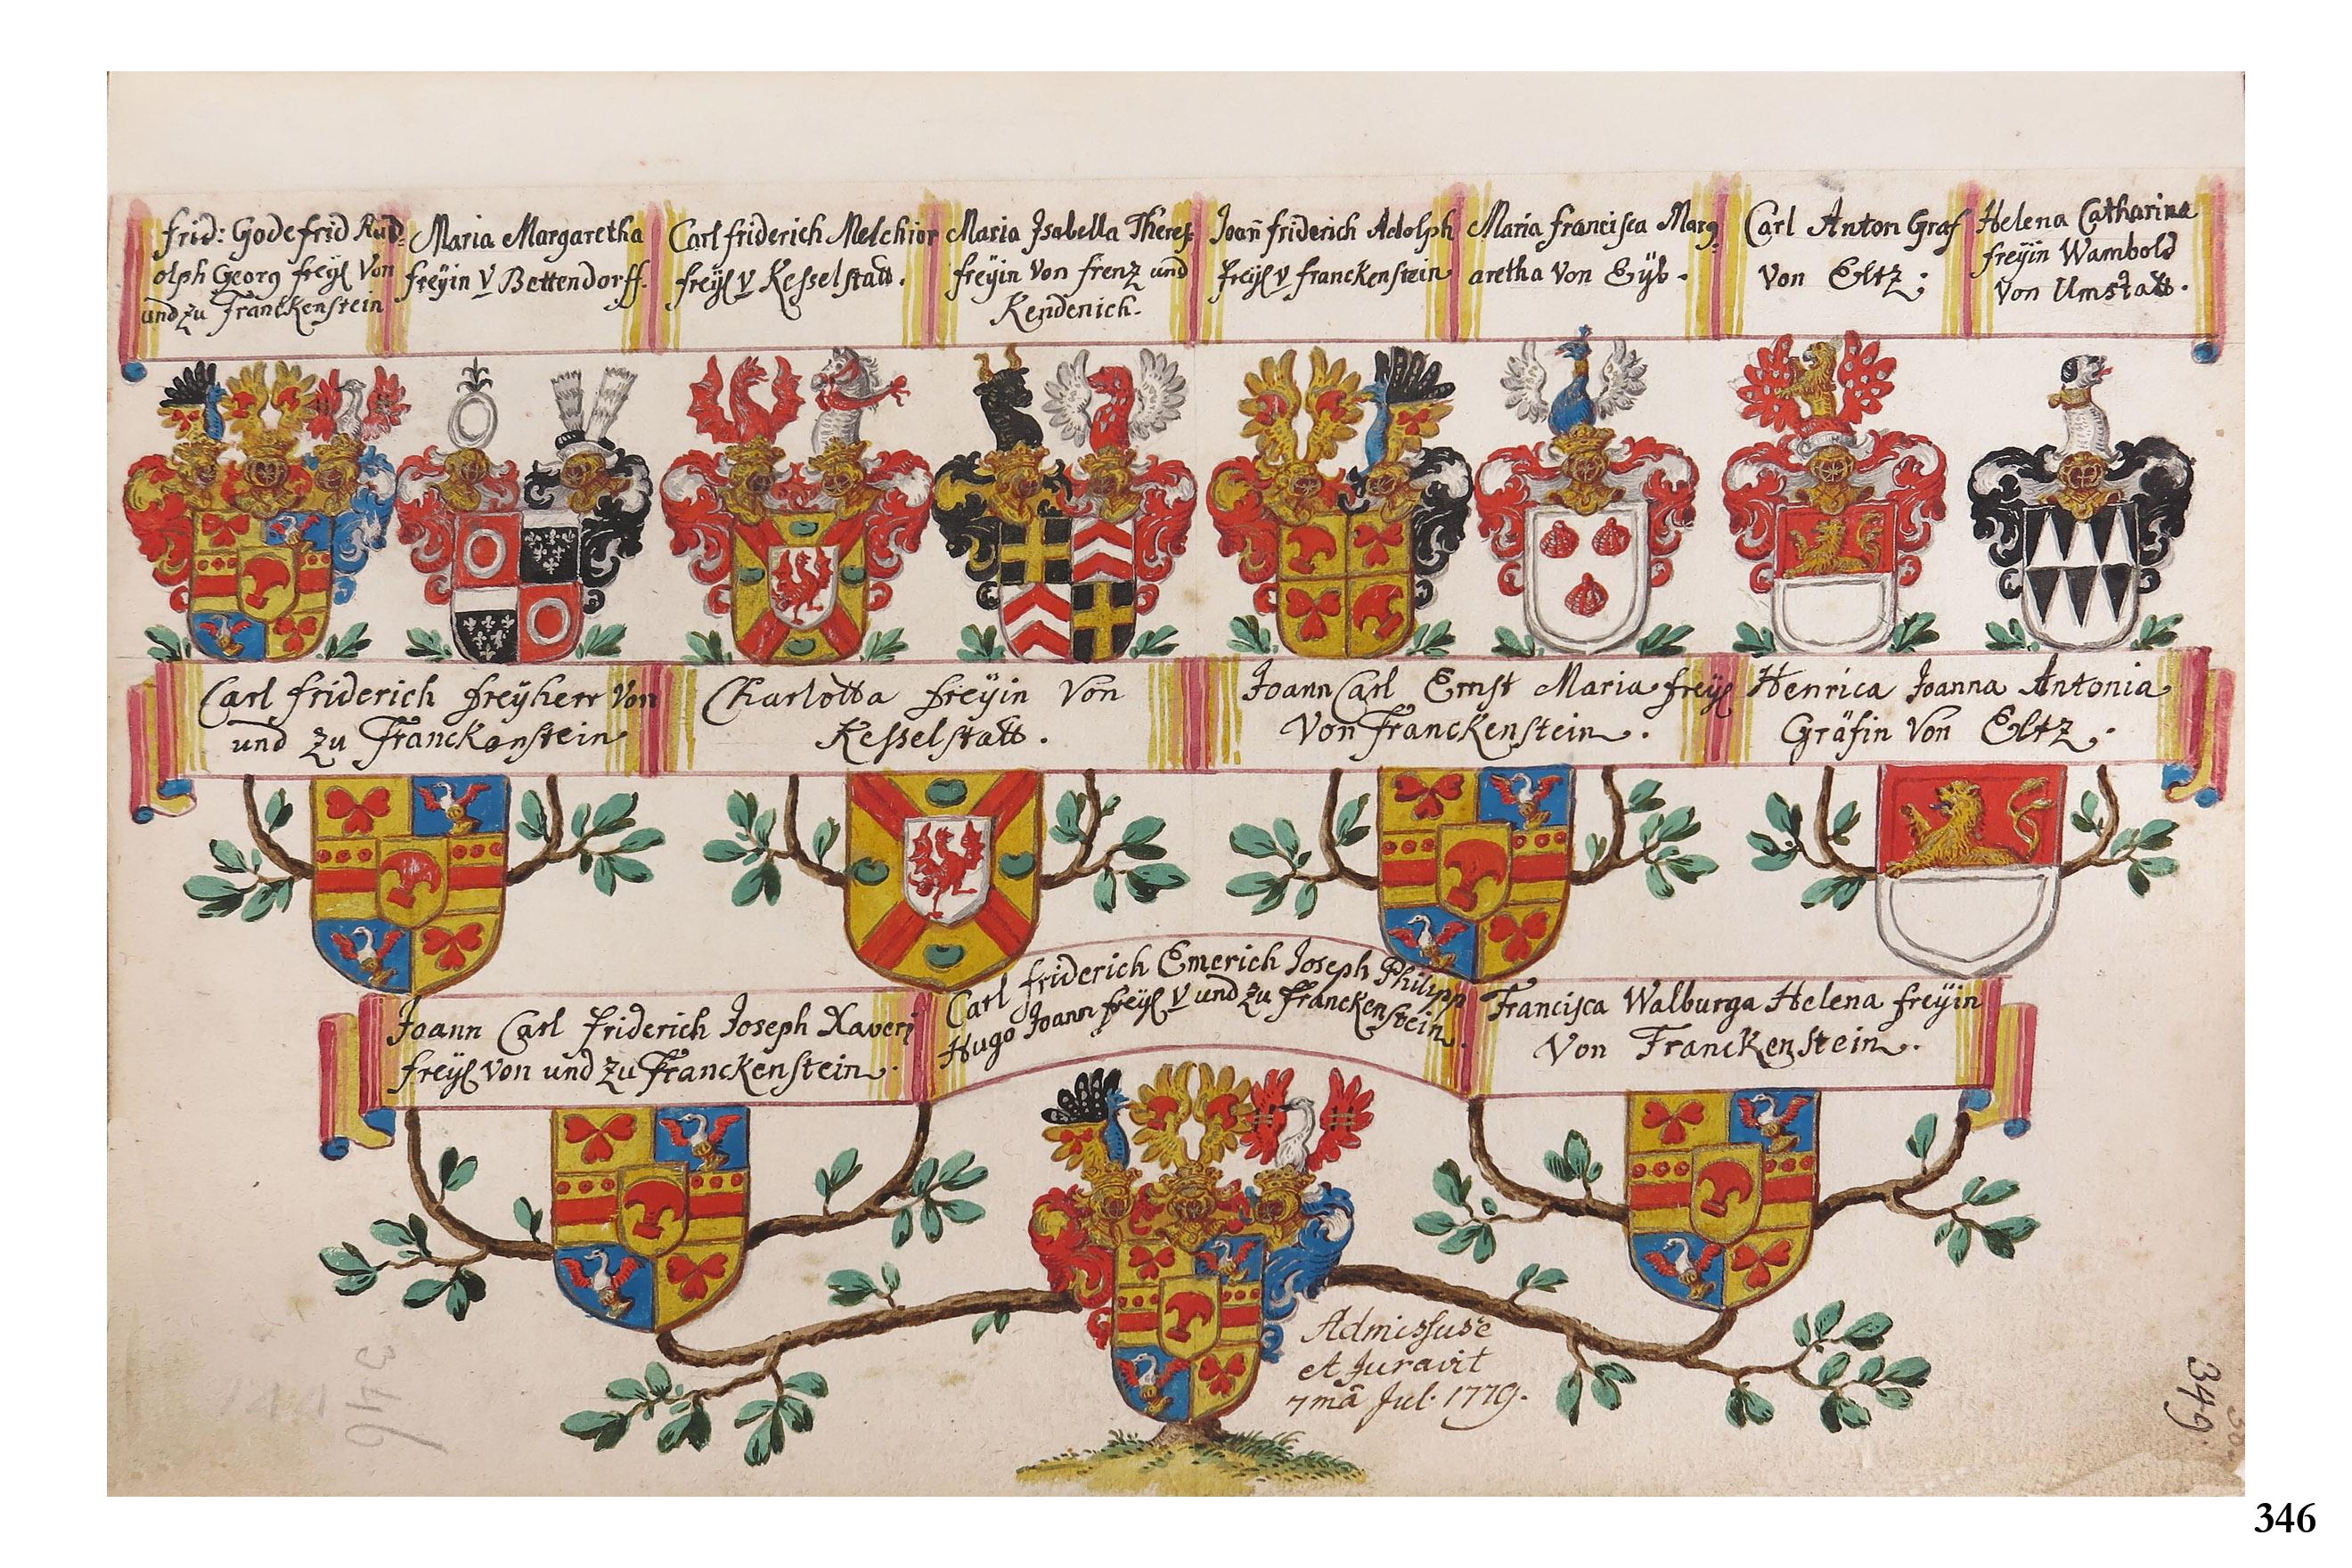 Frid: Godefrid Rud=
olph Georg Freyh Von
und zu Franckenstein
Maria Margaretha
Freÿin V Bettendorff.
Carl Friderich Melchior
Freyh V Kesselstatt.
Maria Isabella Theres.
Freÿin Von Frenz und
Kendenich.
Joan̄ Friderich Adolph
Freyh V Franckenstein
Maria Francisca Marg
aretha Von Eÿb.
Carl Anton Graf
Von Eltz;
Helena Catharina
Freÿin Wambold
Von Umstatt.
Carl Friderich Freÿherr Von
und zu Franckenstein
Charlotta Freÿin Von
Kesselstatt.
Joann Carl Ernst Maria Freyh
Von Franckenstein.
Henrica Joanna Antonia
Gräfin Von Eltz.
Joann Carl Friderich Joseph Xaveri
Freyh Von und zu Franckenstein.
Carl Friderich Emerich Joseph Philipp
Hugo Joann Freyh V und zu Franckenstein.
Francisca Walburga Helena Freÿin
Von Franckenstein.
Admissus e
et Juravit
7mâ Jul. 1779.
346
349.
346